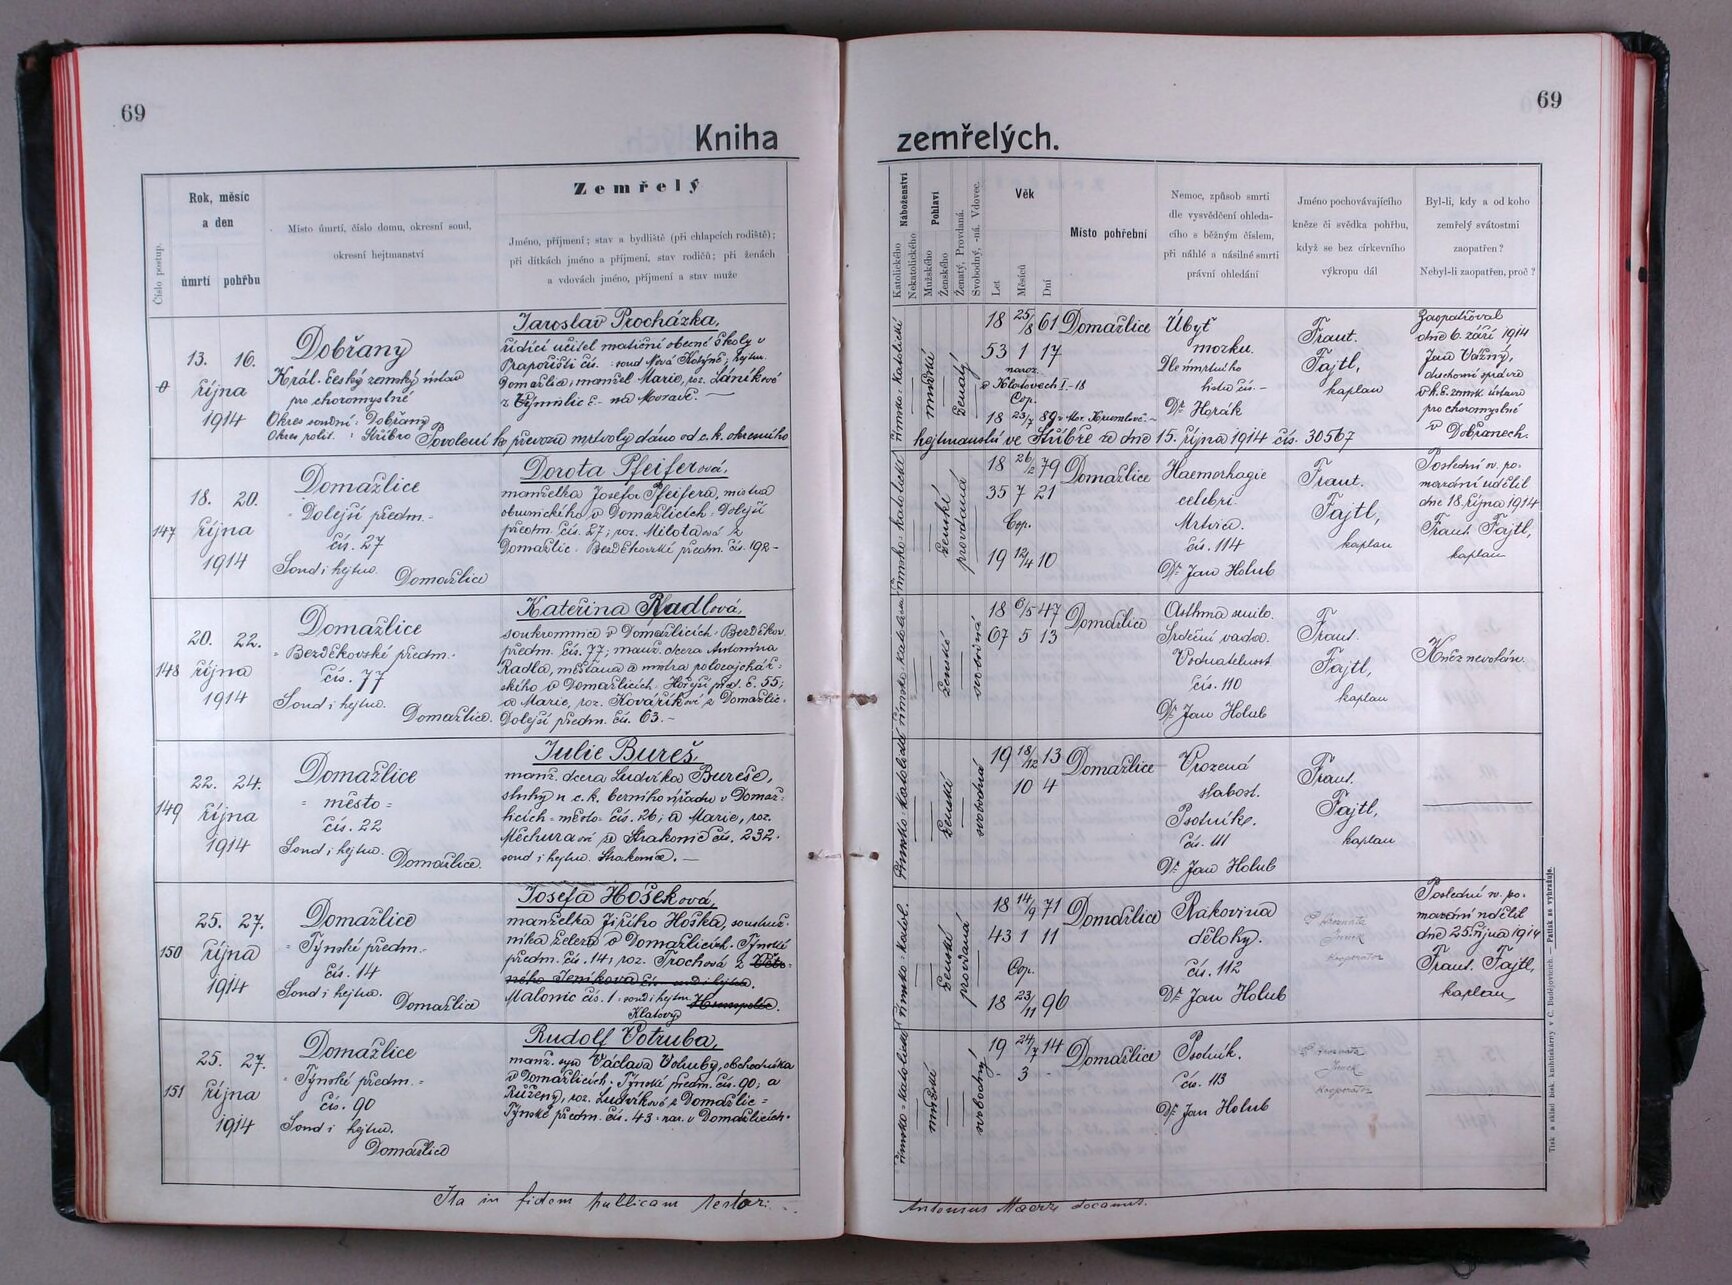 69
69
Kniha
zemřelých.
Číslo postup.
Rok, měsíc
a den
úmrtí pohřbu
Místo úmrtí, číslo domu, okresní soud,
okresní hejtmanství
Zemřelý
Jméno, příjmení; stav a bydliště (při chlapcích rodiště);
při dítkách jméno a příjmení, stav rodičů; při ženách
a vdovách jméno, příjmení a stav muže
Náboženství
Katolického
Nekatolického
Pohlaví
Mužského
Ženského
Ženatý, Provdaná.
Svobodný, -ná. Vdovec.
Věk
Let
Měsíců
Dní
Místo pohřební
Nemoc, způsob smrti
dle vysvědčení ohleda-
cího s běžným číslem,
při náhlé a násilné smrti
právní ohledání
Jméno pochovávajícího
kněze či svědka pohřbu,
když se bez církevního
výkropu dál
Byl-li, kdy a od koho
zemřelý svátostmi
zaopatřen?
Nebyl-li zaopatřen, proč?
0
13. 16.
října
1914
Dobřany
Král. český zemský ústav
pro choromyslné
Okres soudní: Dobřany
Okres polit. : Stříbro
Jaroslav Procházka,
řídící učitel matiční obecné školy v
Zapořišti čís. soud Nová Kdyně, hejtm.
Domažlice, manžel Marie, roz. Láníkové
na Moravě.
Povolení k převozu mrtvoly dáno od c. k. okresního
hejtmanství ve Stříbře ze dne 15. října 1914 čís. 30567
římsko-katolické
mužské
ženatý
18 25/8 61
53 1 17
naroz.
v Klatovech I-18
Cop.
18 23/7 89
Domažlice
Úbyť
mozku.
Dle úmrtního
listu čís. -
Dr. Horák
Frant.
Fajtl,
kaplan
Zaopatřoval
dne 6. září 1914
Jan Vážný,
duchovní správce
v k. č. zemsk. ústavu
pro choromyslné
v Dobřanech.
147
18. 20.
října
1914
Domažlice
- Dolejší předm. -
čís. 27
Soud i hejtm. Domažlice
Dorota Pfeiferová,
manželka Josefa Pfeifera, mistra
obuvnického v Domažlicích - Dolejší
předm. čís. 27; roz. Milotaová z
Domažlic - Bezděkovské předm. čís. 192 -
římsko-katolické
ženské
provdaná
18 26/2 79
35 7 21
Cop.
19 12/4 10
Domažlice
Haemorhagie
celebri.
Mrtvice.
čís. 114
Dr. Jan Holub
Frant.
Fajtl,
kaplan
Poslední sv. po-
mazání udělil
dne 18. října 1914
Frant. Fajtl,
kaplan
148
20. 22.
října
1914
Domažlice
- Bezděkovské předm. -
čís. 77
Soud i hejtm.
Domažlice.
Kateřina Radlová,
soukromnice v Domažlicích - Bezděkov.
předm. čís. 77; manž. dcera Antonína
Radla, měšťana a mistra
v Domažlicích - Hořejší před. č. 55;
a Marie, roz. Kovaříkové z Domažlic -
Dolejší předm. čís. 63. -
římsko-katolické
ženské
svobodná
18 6/5 47
67 5 13
Domažlice
Asthma
Srdeční vada.
Vodnatelnost
čís. 110
Dr. Jan Holub
Frant.
Fajtl,
kaplan
Kněz nevolán.
149
22. 24.
října
1914
Domažlice
- město -
čís. 22
Soud i hejtm.
Domažlice.
Julie Bureš,
manž. dcera Ludvíka Bureše,
sluhy u c. k. berního úřadu v Domaž-
licích - město čís. 26; a Marie, roz.
Měchuraové ze Strakonic čís. 232.
soud i hejtm. Strakonice. -
Římsko-katolické
ženské
svobodná
19 18/12 13
10 4
Domažlice
Vrozená
slabost.
Psotníke.
čís. 111
Dr. Jan Holub
Frant.
Fajtl,
kaplan
150
25. 27.
října
1914
Domažlice
- Týnské předm. -
čís. 14
Soud i hejtm. Domažlice
Josefa Hošeková,
manželka Jiřího Hoška,
v Domažlicích - Týnské
předm. čís. 14; roz. Trochová z
Malonic čís. 1. soud i hejtm.
Klatovy
římsko-katol.
ženské
provdaná
18 14/9 71
43 1 11
Cop.
18 23/11 96
Domažlice
Rakovina
dělohy.
čís. 112
Dr. Jan Holub
kooperátor
Poslední sv. po-
mazání udělil
dne 25. října 1914
Frant. Fajtl,
kaplan
151
25. 27.
října
1914
Domažlice
- Týnské předm. -
čís. 90
Soud i hejtm.
Domažlice
Rudolf Votruba,
manž. syn Václava Votruby, obchodníka
v Domažlicích - Týnské předm. čís. 90; a
Růženy, roz. Ludvíkové z Domažlic -
Týnské předm. čís. 43 - nar. v Domažlicích.
římsko-katolické
mužské
svobodný
19 24/7 14
- 3 -
Domažlice
Psotník.
čís. 113
Dr. Jan Holub
kooperátor
Ita in fidem publicam testor:
Antonius Maerz decanus.
Tisk a sklad bisk. knihtiskárny v Č. Budějovicích. — Patisk se vyhražuje.